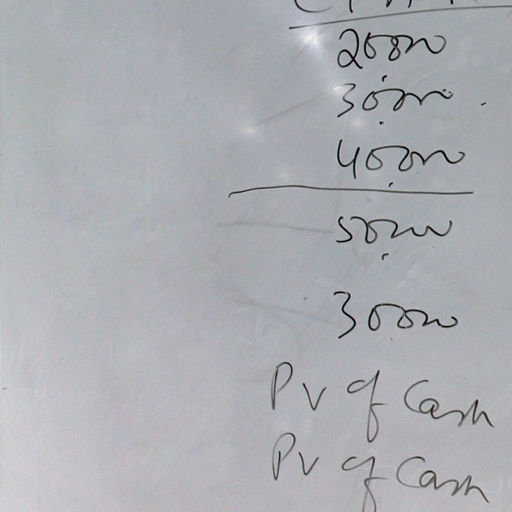 20000
30000
40000
50000
30000
PV of Cash
PV of Cash